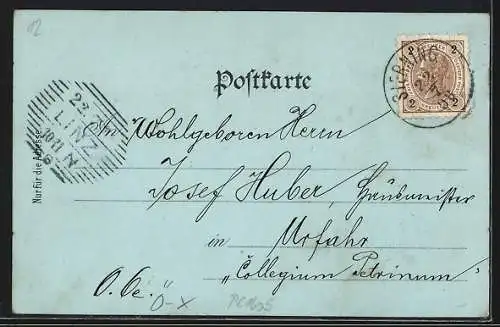 12
2
2
2
2
SIERNING
22
98
Postkarte
22
LINZ
10-11 N
6
Nur für die Adresse
An Wohlgeboren Herrn
Josef Huber, Hausmeister
in
Urfahr
„Collegium Petrinum"
O. Oe.
O-X